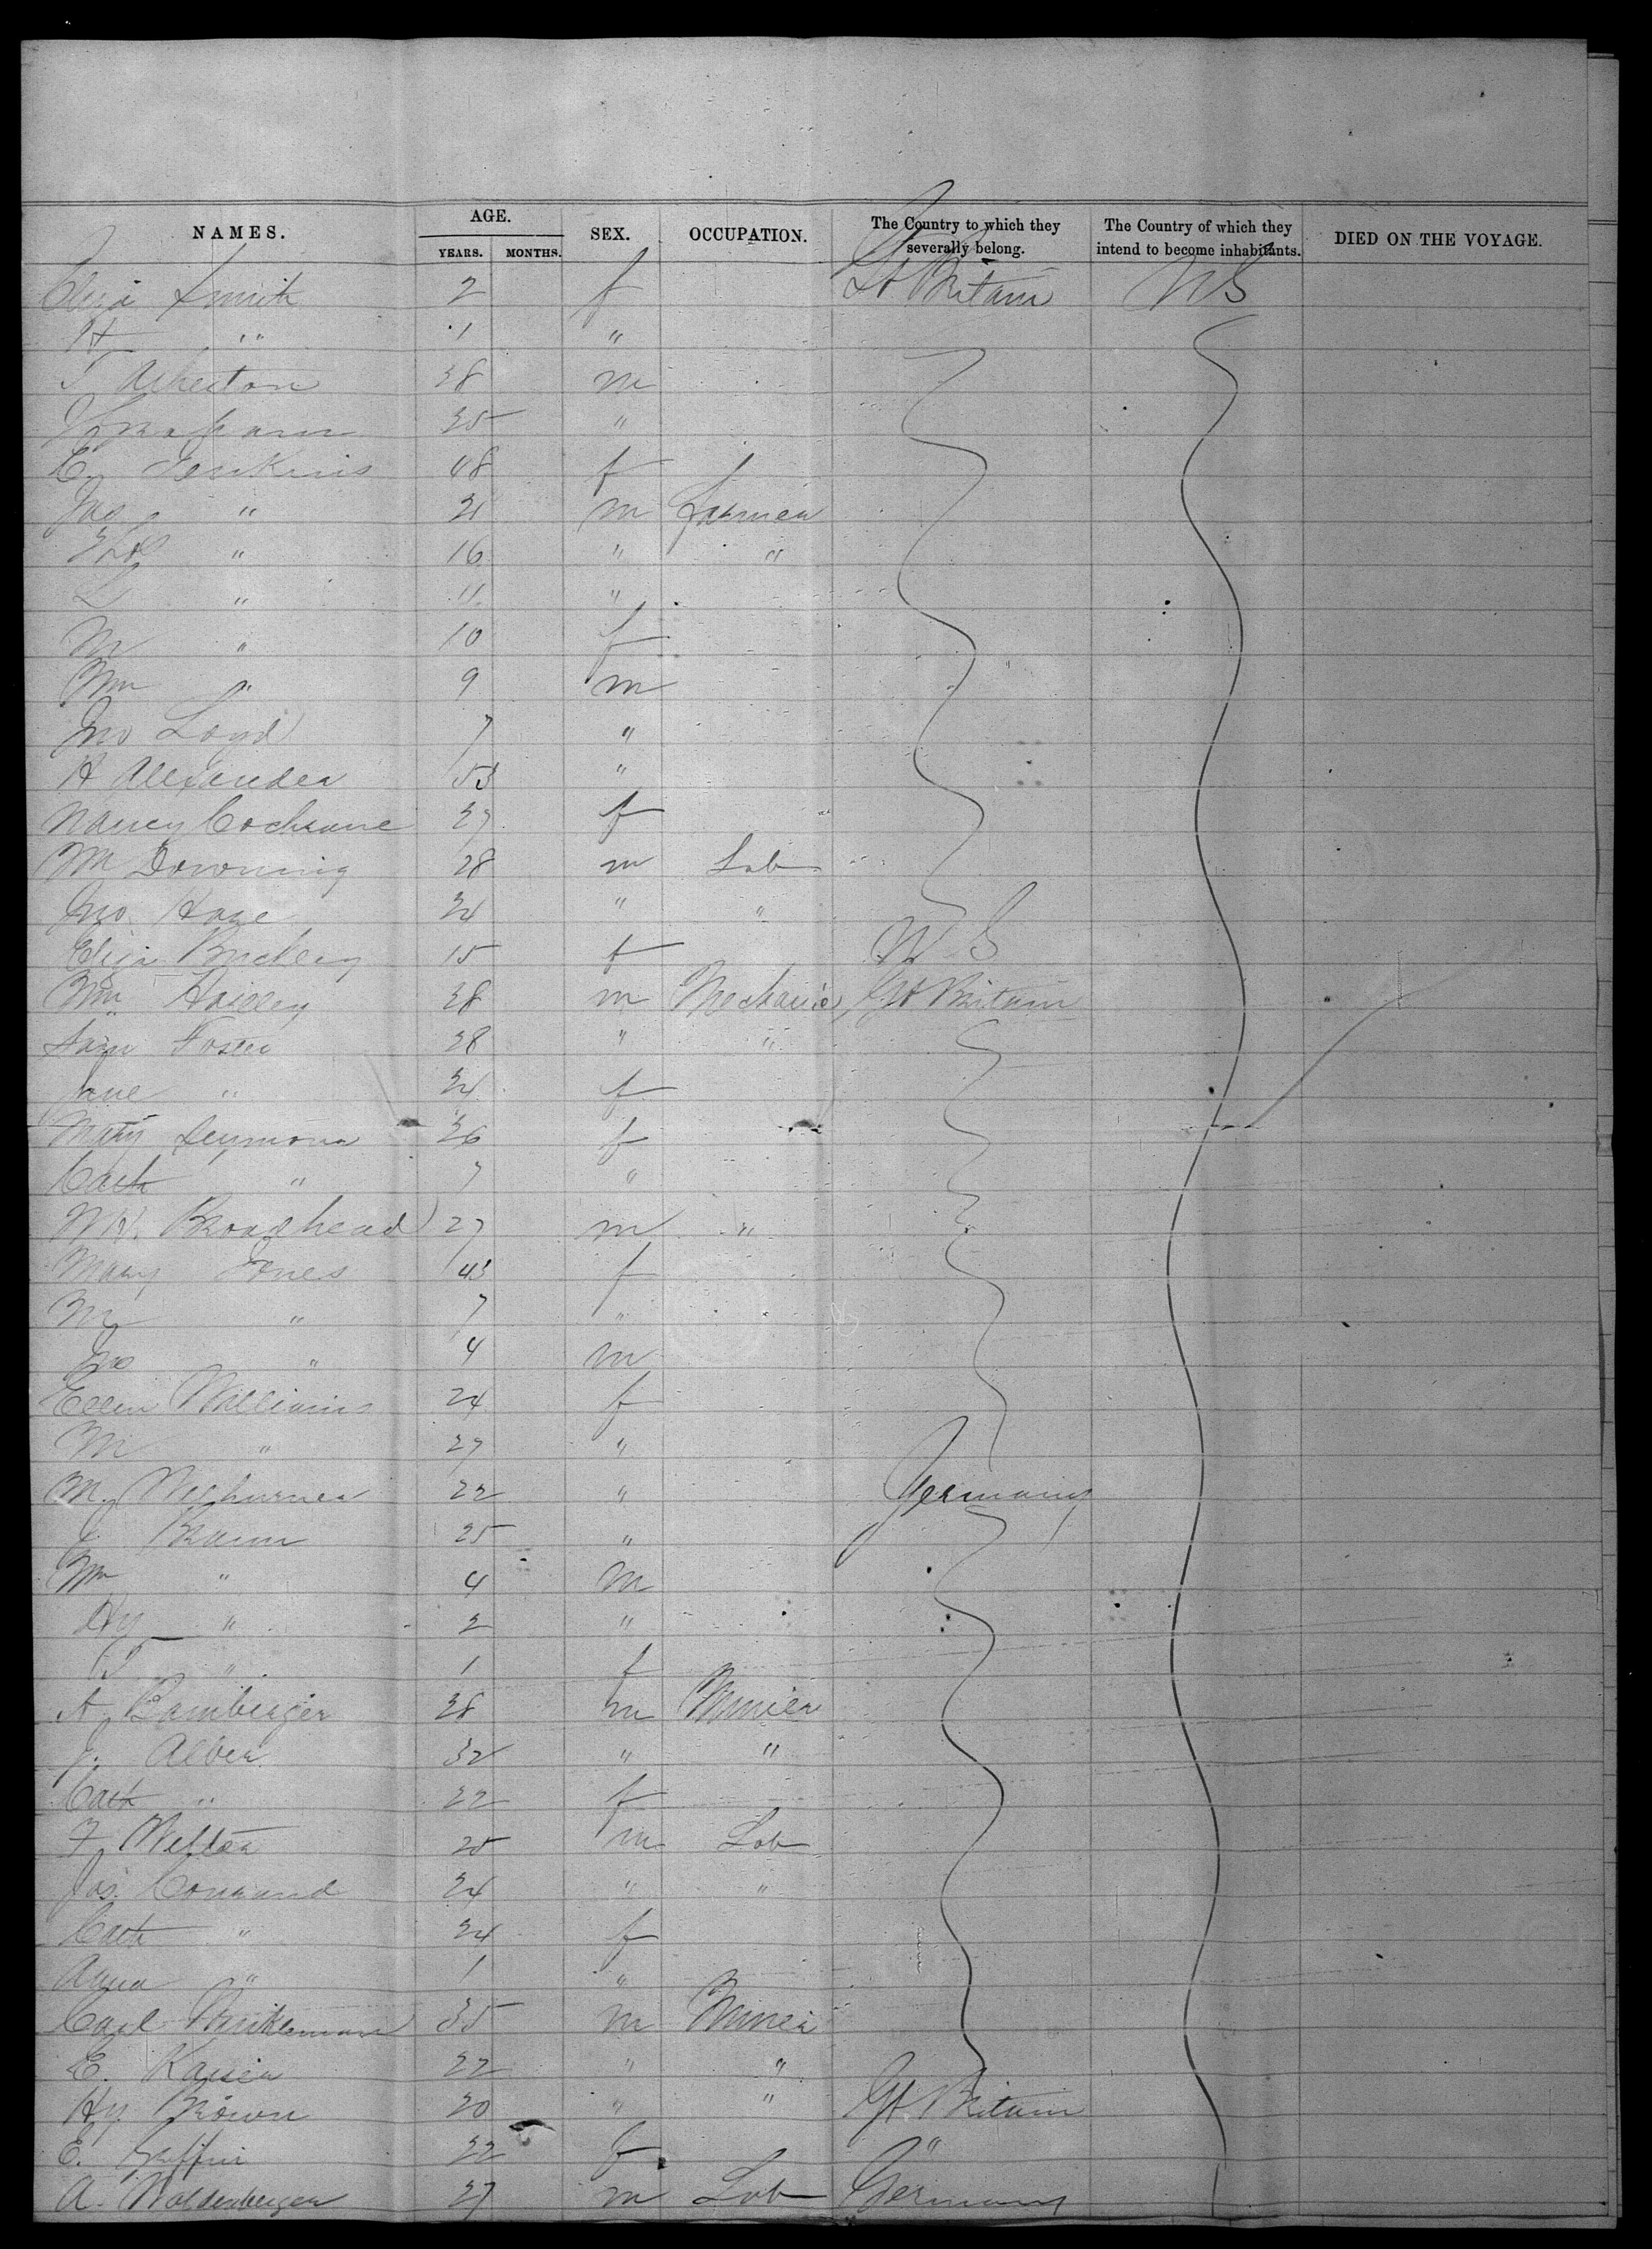 NAMES. AGE. SEX. OCCUPATION. The Country to which they severally belong. The Country of which they intend to become inhabitants. DIED ON THE VOYAGE.
YEARS. MONTHS.
Eliza Smith 2 f Gt Britain U S
H " 1 "
T Atherton 38 m
35 "
E. Jenkins 48 f
Jas " 21 m Farmer
Thos " 16 " "
L " 11 "
M " 10 f
Wm " 9 m
Jno Loyd 7 "
H Alexander 53 "
Nancy Cochrane 27 f
M Downing 28 m Lab
Jno. Hare 24 " "
Eliza 15 f U S
Wm 38 m Mechanic Gt Britain
Foster 38 " "
Jane " 34 f
Mary Seymour 26 f
Cath " 7 "
W H. Broadhead 27 m "
Mary Jones 43 f
M " 7 "
Jno " 4 m
Ellen Williams 24 f
M " 27 "
M. 22 " Germany
J. Braun 25 "
Wm " 4 m
Hy " 2 "
" 1 f
A Bamberger 38 m Miner
J. Alber 32 " "
Cath " 22 f
F. 25 m Lab
Jos. 24 " "
Cath " 24 f
Anna " 1 "
Carl 35 m Miner
E. Kaiser 22 " "
Hy Brown 20 " " Gt Britain
E. 22 f "
A. Waldenberger 27 m Lab Germany